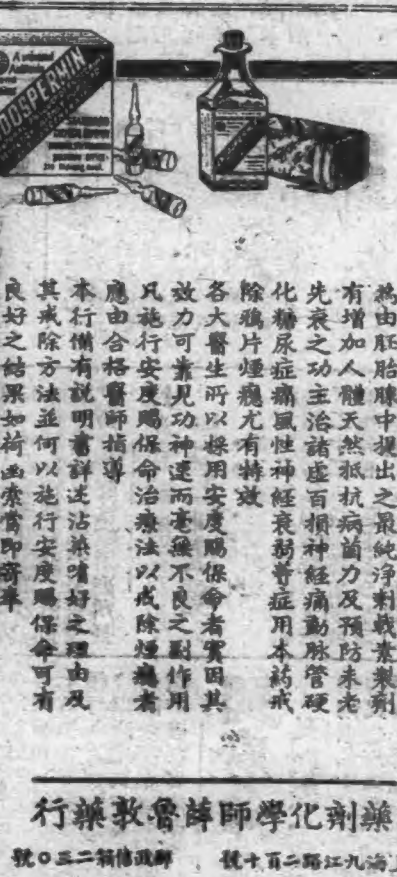 A universal
DOSPERMIN
為由胚胎腺中提出之最純淨刺戟素製劑
有增加人體天然抵抗病菌力及預防未老
先衰之功主治諸虛百損神經痛動脉管硬
化糖尿症痛風性神經衰弱等症用本葯戒
除鴉片煙癮尤有特效
各大醫生所以採用安度賜保命者實因其
效力可靠見功神速而毫無不良之副作用
凡施行安度賜保命治療法以戒除煙癮者
應由合格醫師指導
本行備有説明書詳述沾染嗜好之理由及
其戒除方法並何以施行安度賜保命可有
良好之結果如荷函索當即寄奉
藥劑化學師薛魯敦藥行
上海九江路二百十號 郵政信箱二三〇號